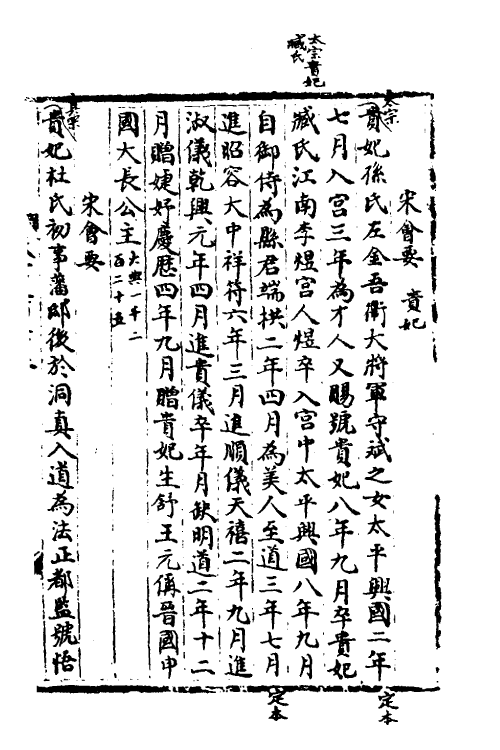 太宗貴妃
臧氏
宋會要 貴妃
太宗
貴妃孫氏左金吾衛大將軍守斌之女太平興國二年
七月入宮三年為才人又賜號貴妃八年九月卒貴妃
臧氏江南李煜宮人煜卒入宮中太平興國八年九月
自御侍為縣君端拱二年四月為美人至道三年七月
進昭容大中祥符六年三月進順儀天禧二年九月進
淑儀乾興元年四月進貴儀卒年月缺明道二年十二
月贈婕妤慶曆四年九月贈貴妃生舒王元偁晉國中
國大長公主大典一千二
百二十五
宋會要
真宗
貴妃杜氏初事藩邸後於洞真入道為法正都監號悟
定本
定本